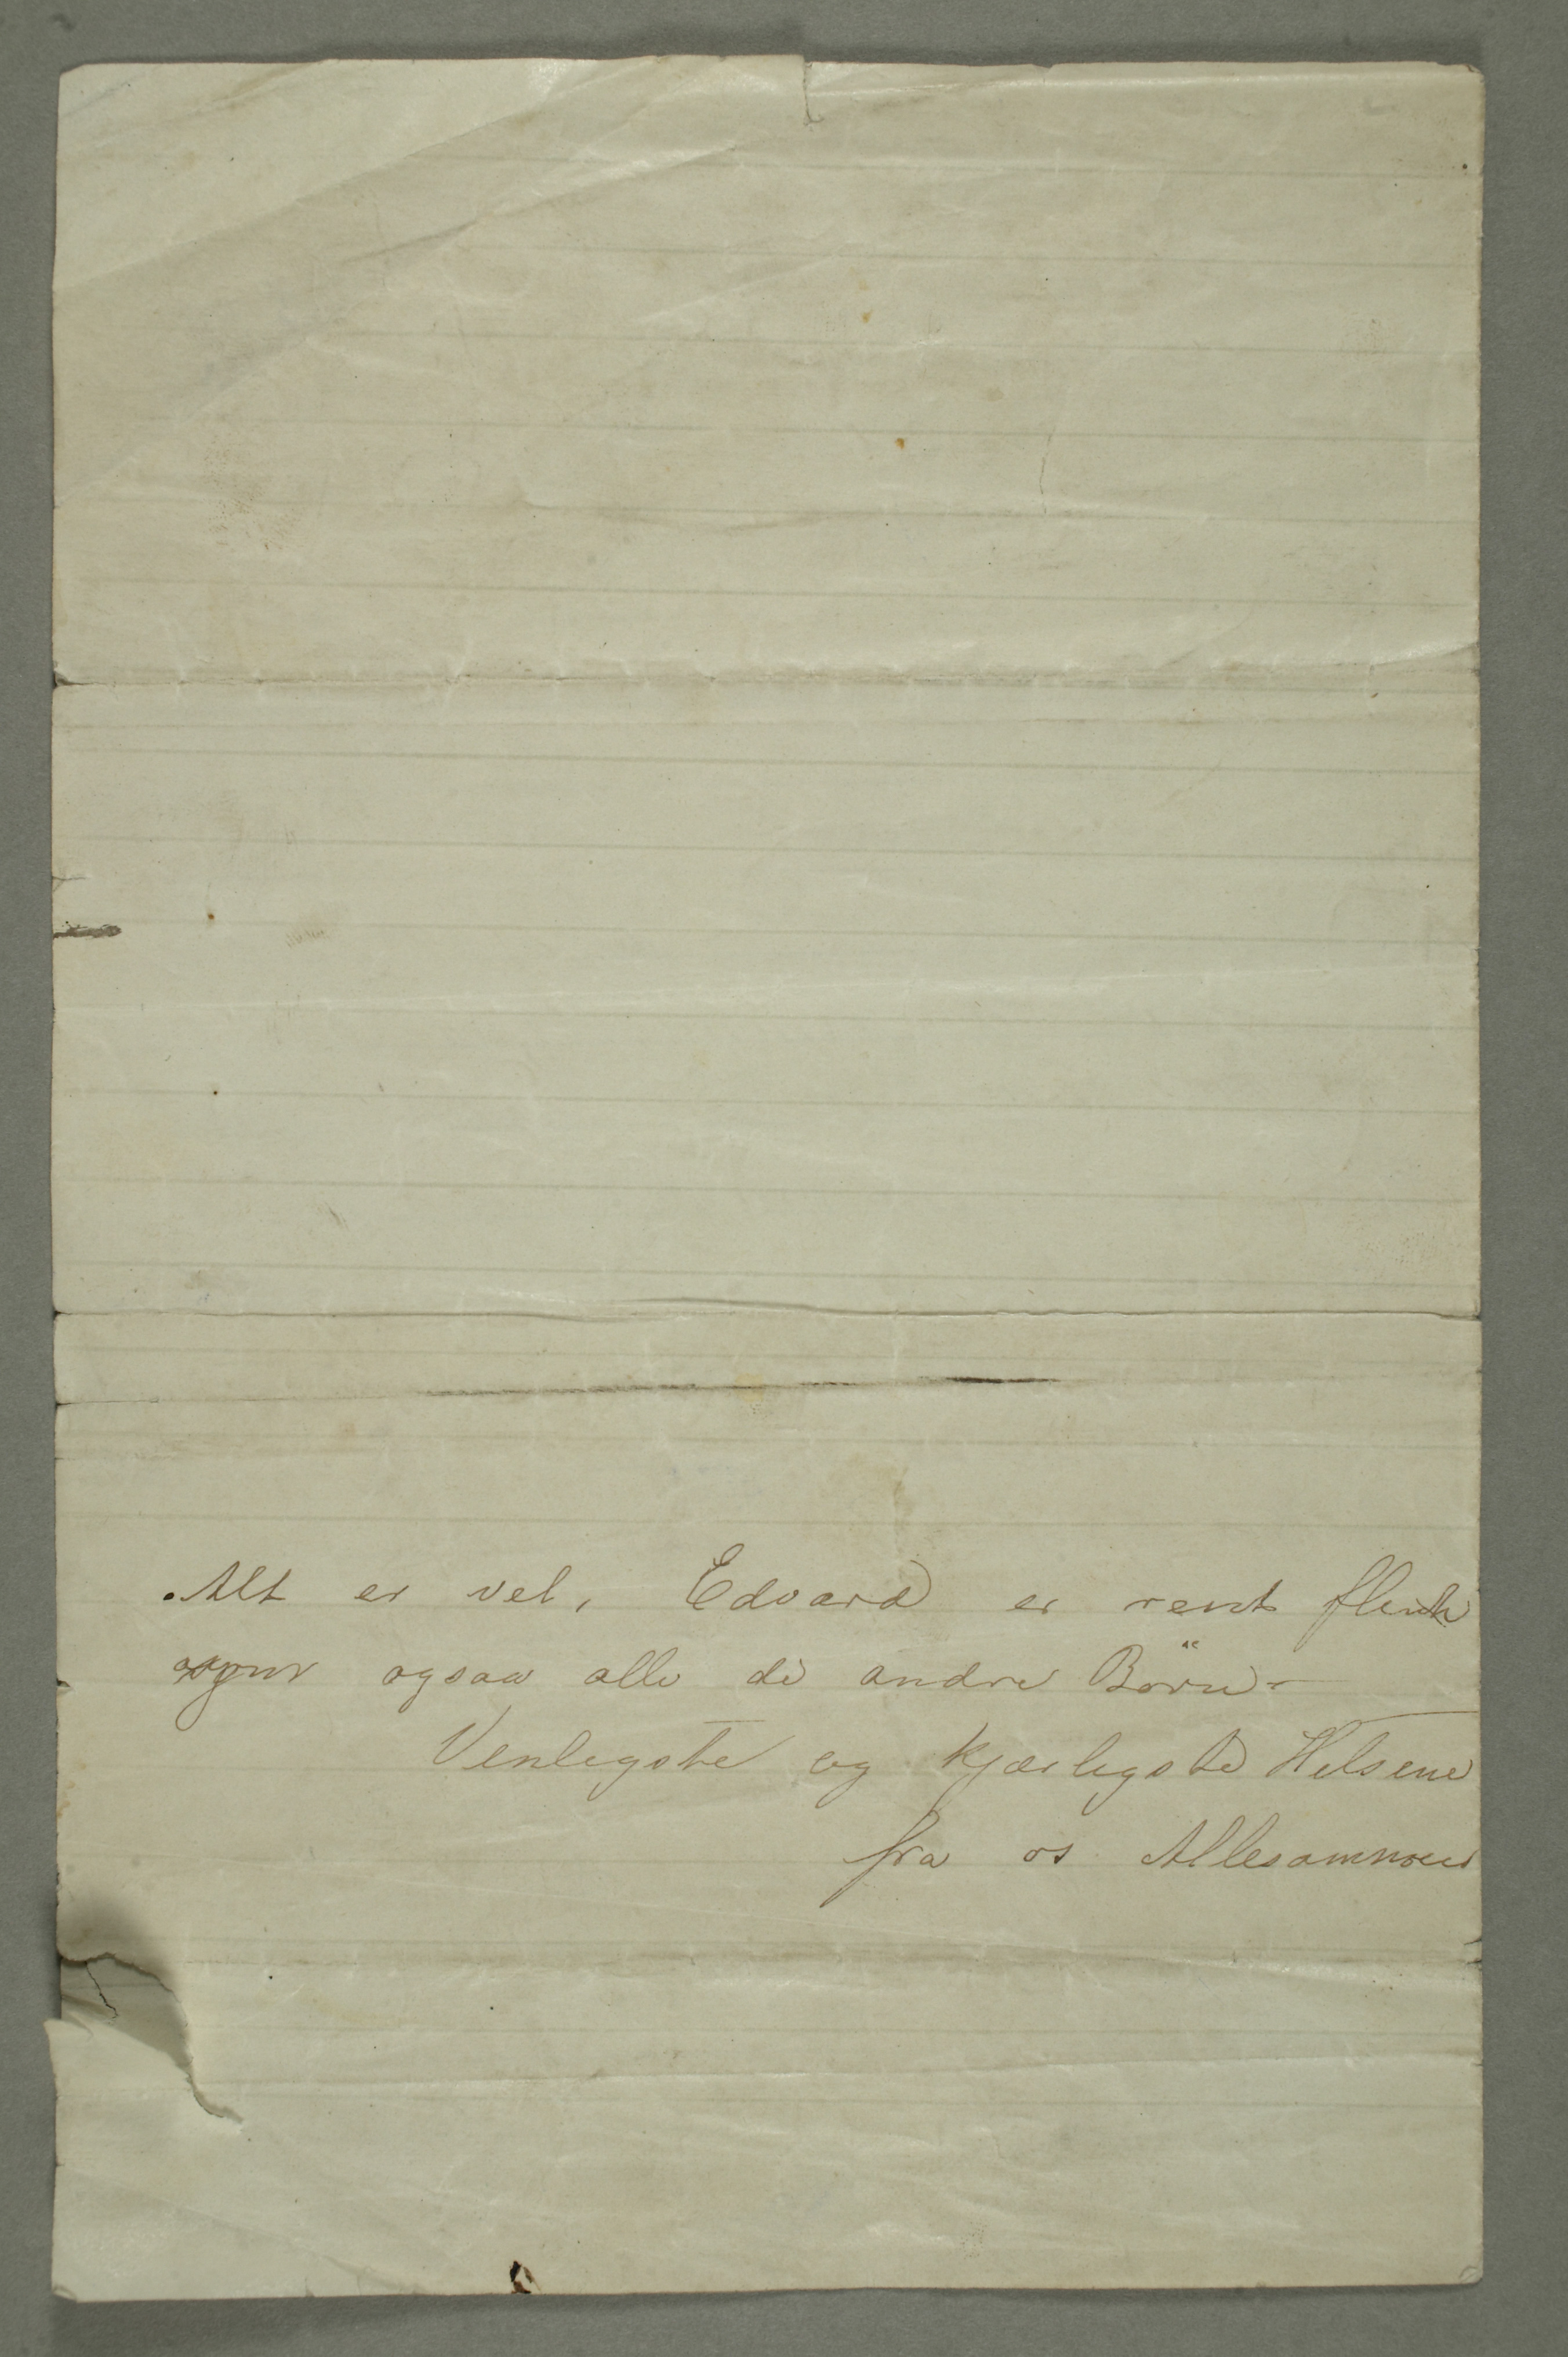 Alt er vel, Edvard er rent flink
ogsaa alle di andre Börn –
Venligste og kjærligste Helsene
fra os Allesammen